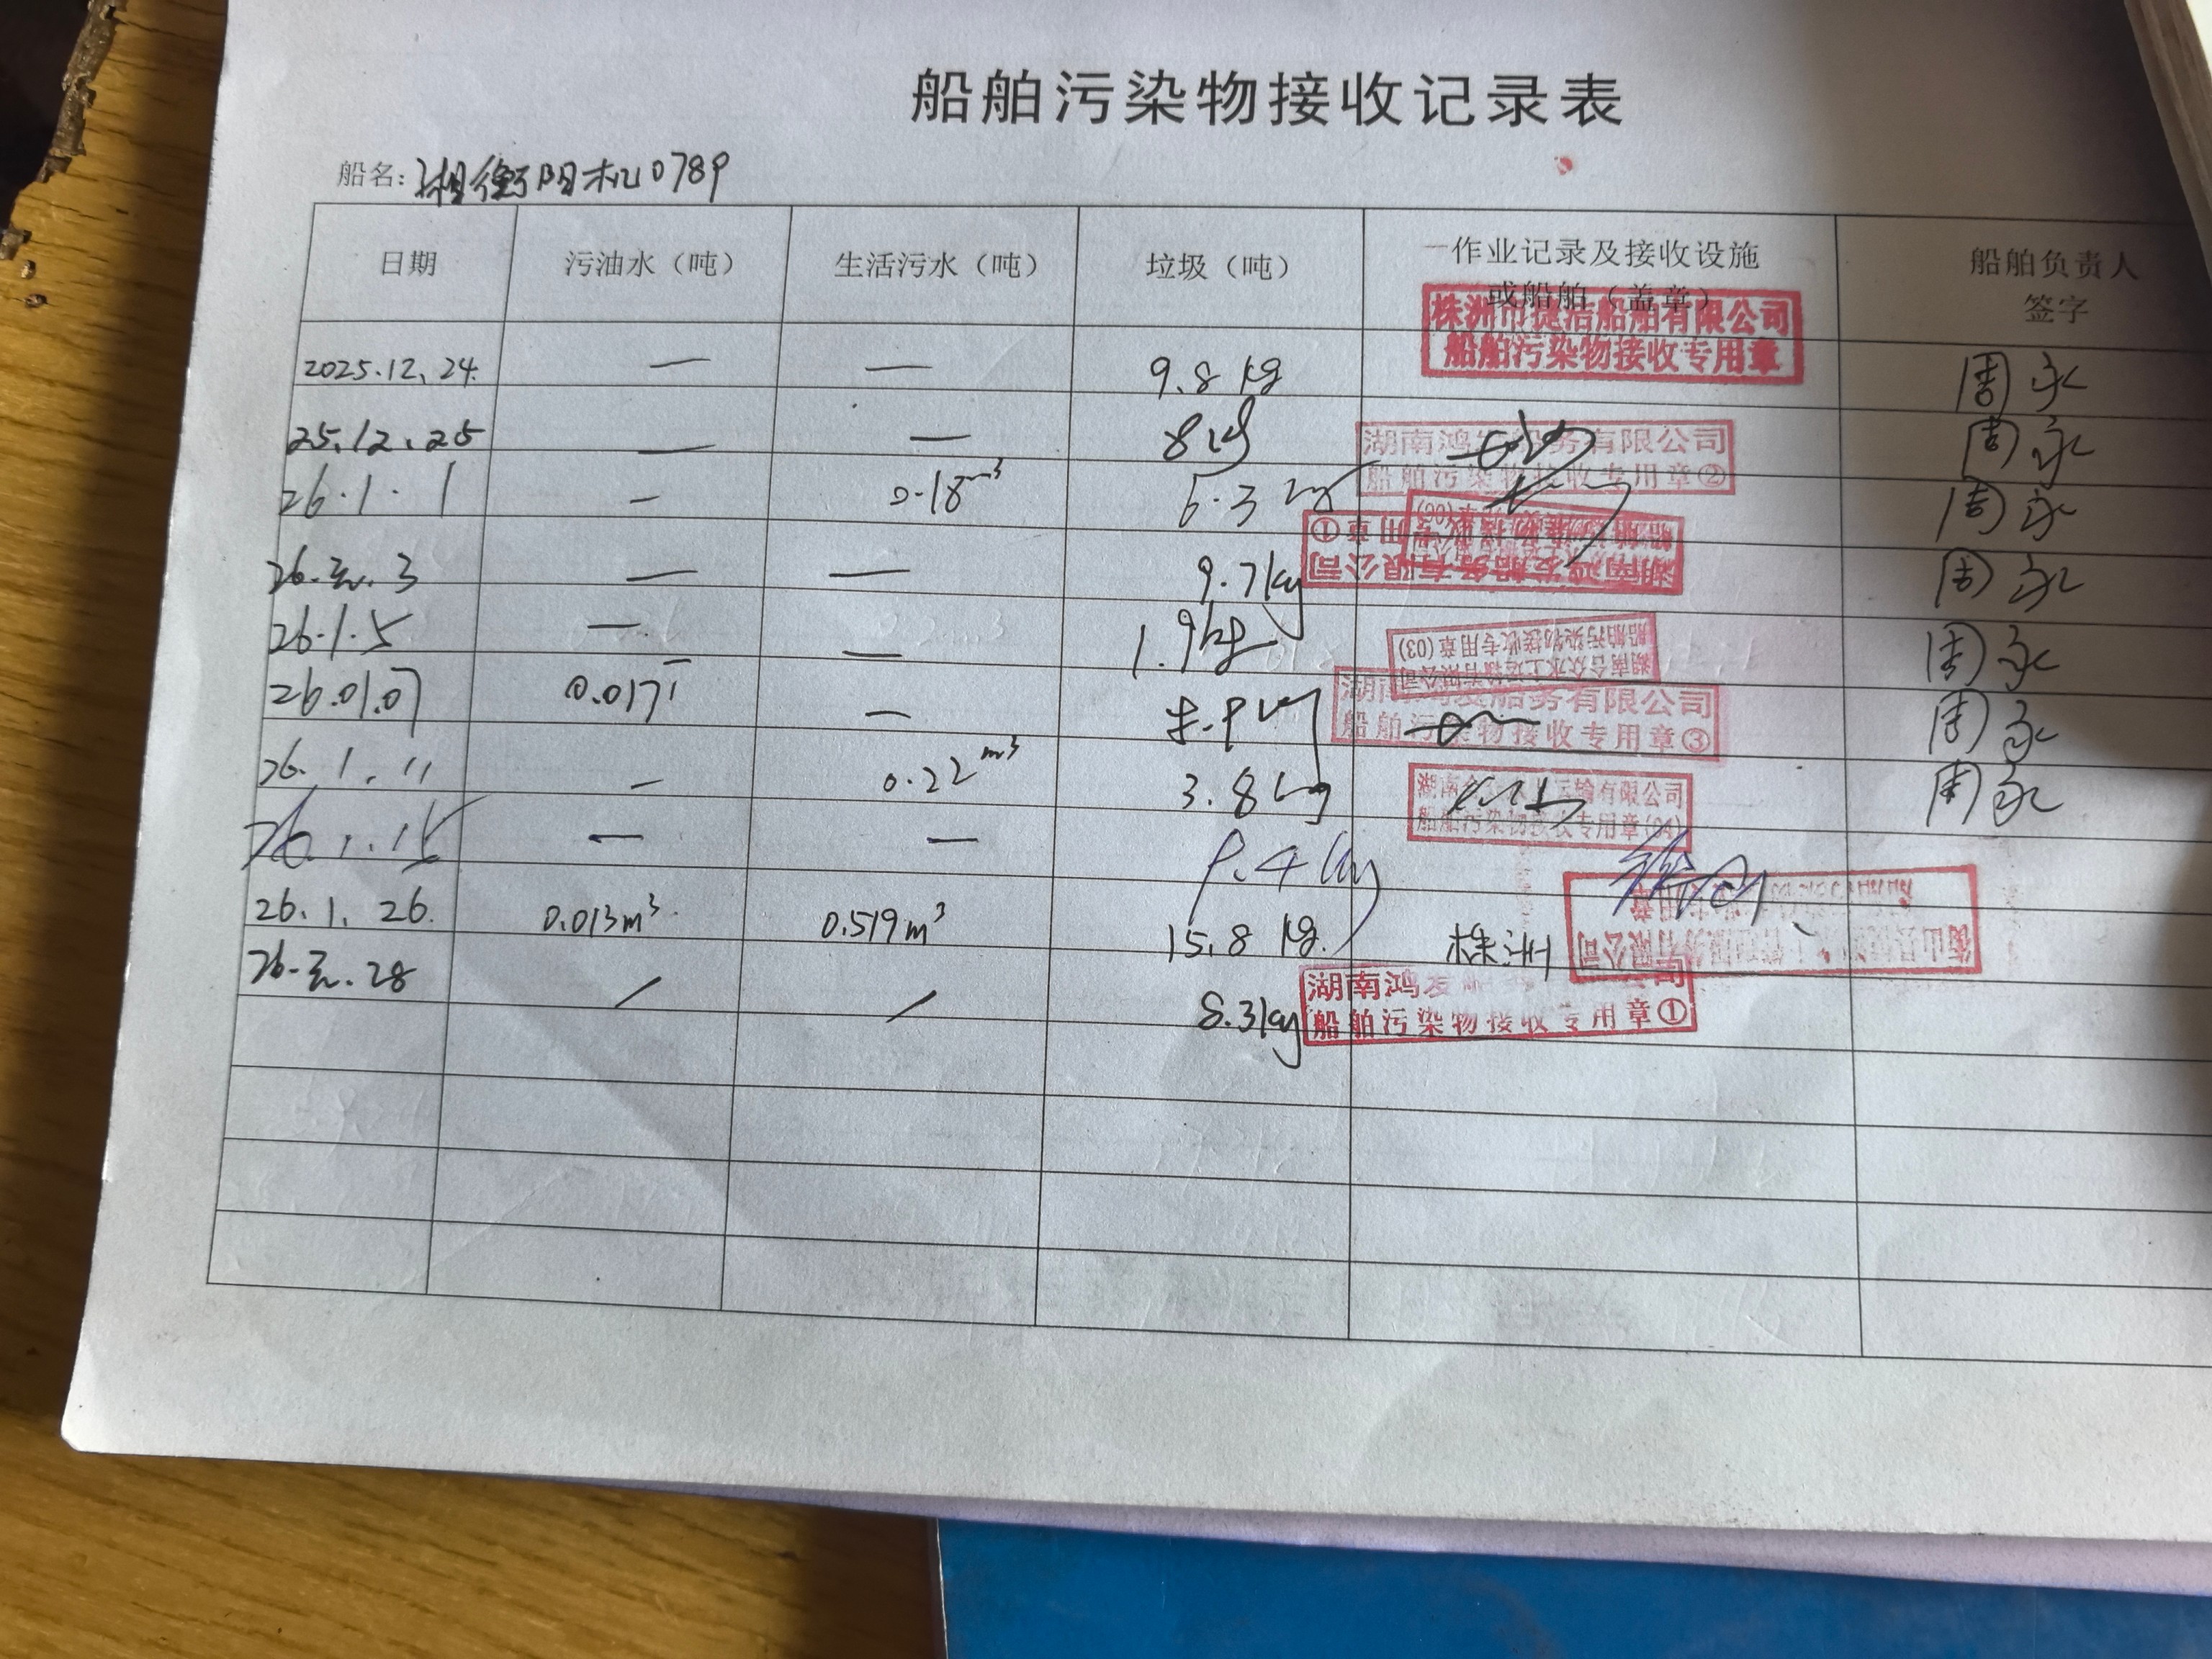 船舶污染物接收记录表
船名: 湘衡阳机0789
日期 污油水（吨） 生活污水（吨） 垃圾（吨） 作业记录及接收设施 船舶负责人
或船舶（盖章） 签字
株洲市捷洁船舶有限公司
船舶污染物接收专用章
2025.12.24. — — 9.8 kg 周永
25.12.25 — — 8kg 周永
湖南鸿发船务有限公司
船舶污染物接收专用章②
26.1.1 — 0.18m³ 6.3 kg 周永
湖南鸿发船务有限公司
船舶污染物接收专用章①
26.元.3 — — 9.7kg 周永
26.1.5 — — 1.9kg 周永
湖南合众水上运输有限公司
船舶污染物接收专用章(03)
26.01.07 0.017T — 周永
湖南鸿发船务有限公司
船舶污染物接收专用章③
26.1.11 — 0.22m³ 3.8kg 周永
湖南 运输有限公司
船舶污染物接收专用章(04)
26.1.15 — — 9.4kg
26.1.26. 0.013m³ 0.519m³ 15.8 kg. 株洲
26.元.28 / / 8.3kg
湖南鸿发 公司
船舶污染物接收专用章①